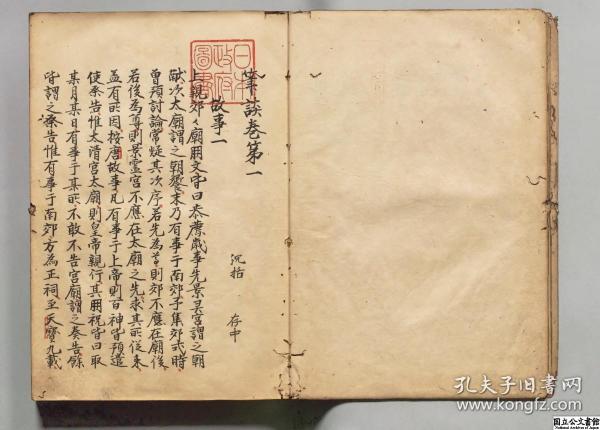 筆談卷第一
沉括 存中
故事一
上親郊〻廟冊文皆曰恭薦歲事先景灵宮謂之朝
献次太廟謂之朝饗末乃有事于南郊予集郊式時
曾預討論常疑其次序若先為尊則郊不應在廟後
若後為尊則景霊宮不應在太廟之先求其所従来
盖有所因按唐故事凢有事于上帝則百神皆預遣
使奏告惟太清宮太廟則皇帝親行其冊祝皆曰取
某月某日有事于某所不敢不告宮廟謂之奏告餘
皆謂之奏告惟有事于南郊方為正祠至天寳九載
日本
政府
圖書
孔夫子旧书网
www.kongfz.com
国立公文書館
National Archives of Japan